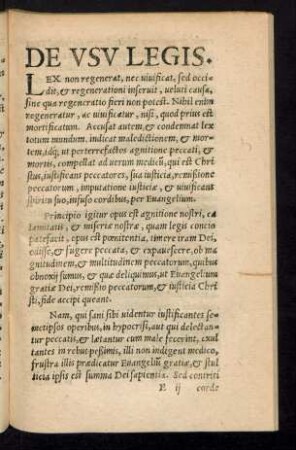 DE VSV LEGIS.
LEX non regenerat, nec uiuificat, sed occi
dit, & regenerationi inseruit, ueluti causa,
sine qua regeneratio fieri non potest. Nihil enim
regeneratur, ac uiuificatur, nisi, quod prius est
mortificatum. Accusat autem, & condemnat lex
totum mundum, indicat maledictionem, & mor-
tem, idq́; ut perterrefactos agnitione peccati, &
mortis, compellat ad uerum medicũ, qui est Chri
stus, iustificans peccatores, sua iusticia, remißione
peccatorum, imputatione iusticiæ, & uiuificans
spiritu suo, infuso cordibus, per Euangelium.
Principio igitur opus est agnitione nostri, ca
lamitatis, & miseriæ nostræ, quam legis concio
patefacit, opus est pœnitentia, timere iram Dei,
odisse, & fugere peccata, & expauescere, ob ma
gnitudinem, & multitudinem peccatorum, quibus
obnoxij sumus, & quæ deliquimus, ut Euangelium
gratiæ Dei, remißio peccatorum, & iusticia Chri
sti, fide accipi queant.
Nam, qui sani sibi uidentur iustificantes se
metipsos operibus, in hypocrisi, aut qui delectan
tur peccatis, & lætantur cum male fecerint, exul
tantes in rebus peßimis, illi non indigent medico,
frustra illis prædicatur Euangeliũ gratiæ, & stul
ticia ipsis est summa Dei sapientia. Sed contriti
P ij corde